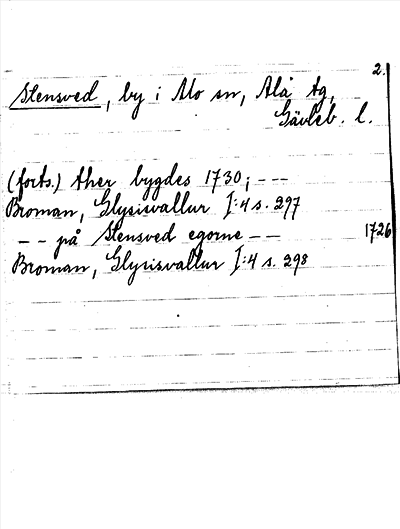 2.
Stensved, by i Mo sn, Ala tg,
Gävleb. l.
(forts.) ther bygdes 1730; ---
Broman, Glysisvallur I:4 s. 297
-- på Stensved egorne -- 1726
Broman, Glysisvallur I:4 s. 298